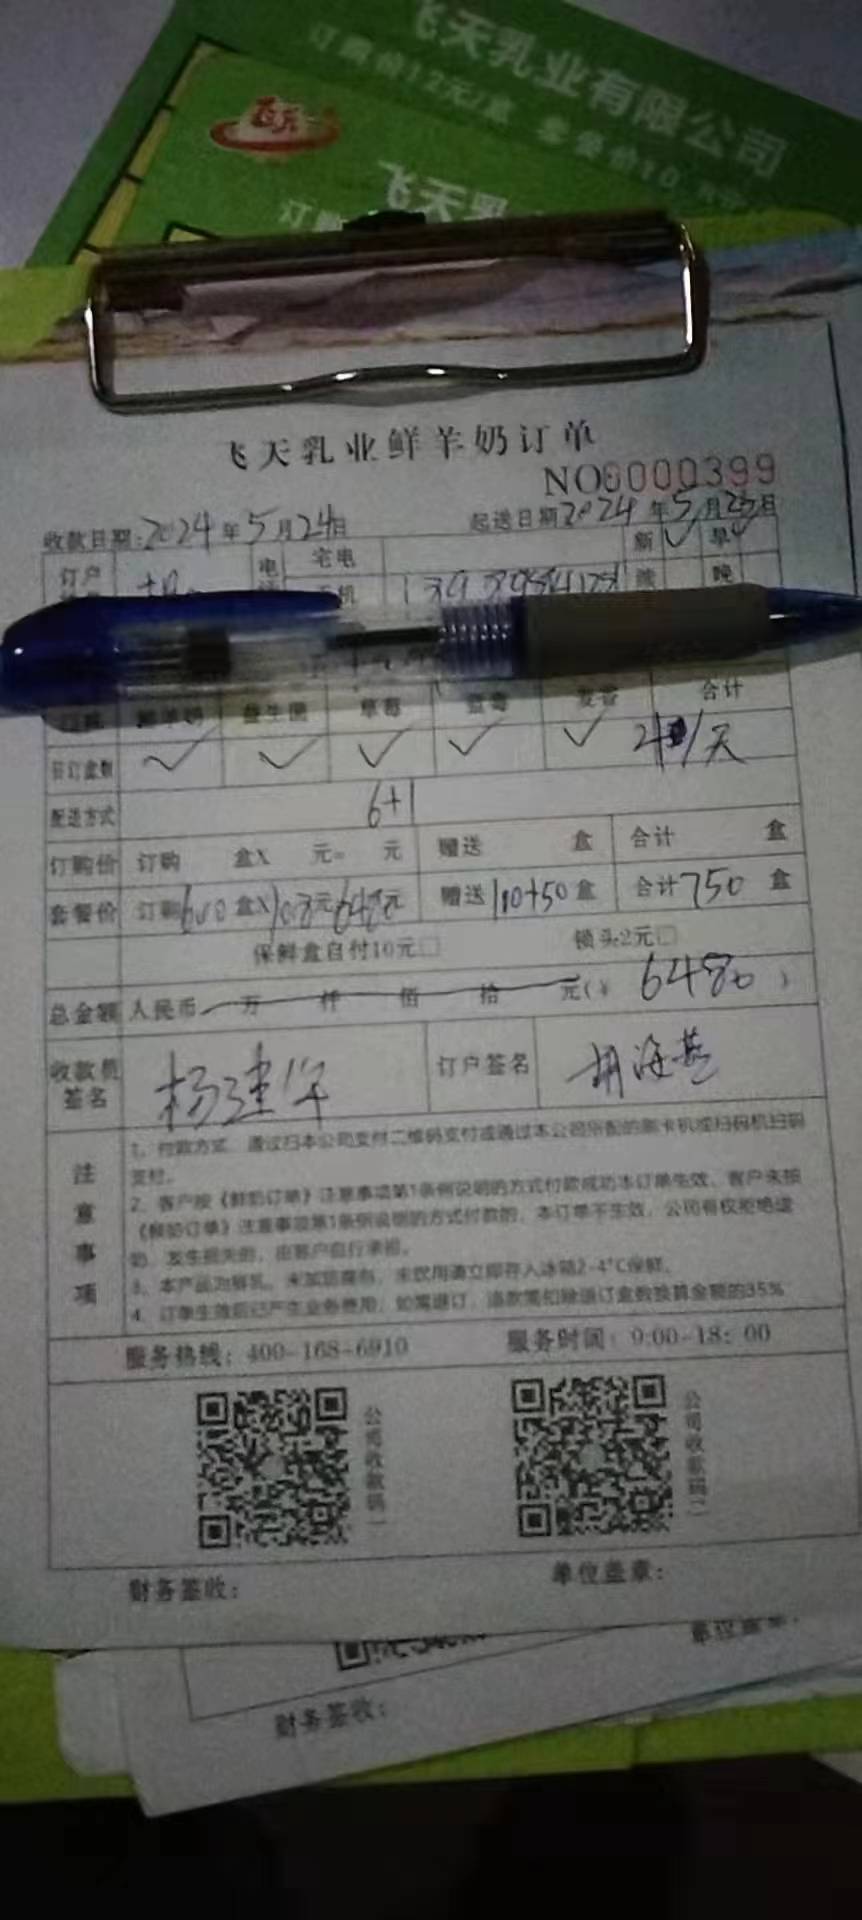 飞天乳业有限公司
订购价12元/盒 套餐价10
飞天
飞天乳
订购
飞天乳业鲜羊奶订单
NO0000399
收款日期:2024年5月24日 起送日期2024年5月25日
订户 电 宅电 新 ✓ 早 ✓
手机 晚
益生菌 草莓 蓝莓 合计
日订盒数 ✓ ✓ ✓ ✓ ✓ /天
配送方式 6+1
订购价 订购 盒X 元= 元 赠送 盒 合计 盒
套餐价 订购600盒X10.8元6480元 赠送100+50盒 合计750盒
保鲜盒自付10元□ 锁头2元□
总金额 人民币 万 仟 佰 拾 元(¥ 6480 )
收款员签名 杨建华 订户签名 胡海燕
注意事项
1、付款方式:通过扫本公司支付二维码支付或通过本公司所配的刷卡机或扫码机扫码
支付。
2、客户按《鲜奶订单》注意事项第1条例说明的方式付款成功本订单生效,客户未按
《鲜奶订单》注意事项第1条例说明的方式付款的,本订单不生效,公司有权拒绝送
奶,发生损失的,由客户自行承担。
3、本产品为鲜乳,未加防腐剂,未饮用请立即存入冰箱2-4°C保鲜。
4、订单生效后已产生业务费用,如需退订,退款需扣除退订盒数换算金额的35%
服务热线:400-168-6910 服务时间:9:00-18:00
公司收款码一 公司收款码二
财务签收: 单位盖章:
单位盖章:
财务签收: